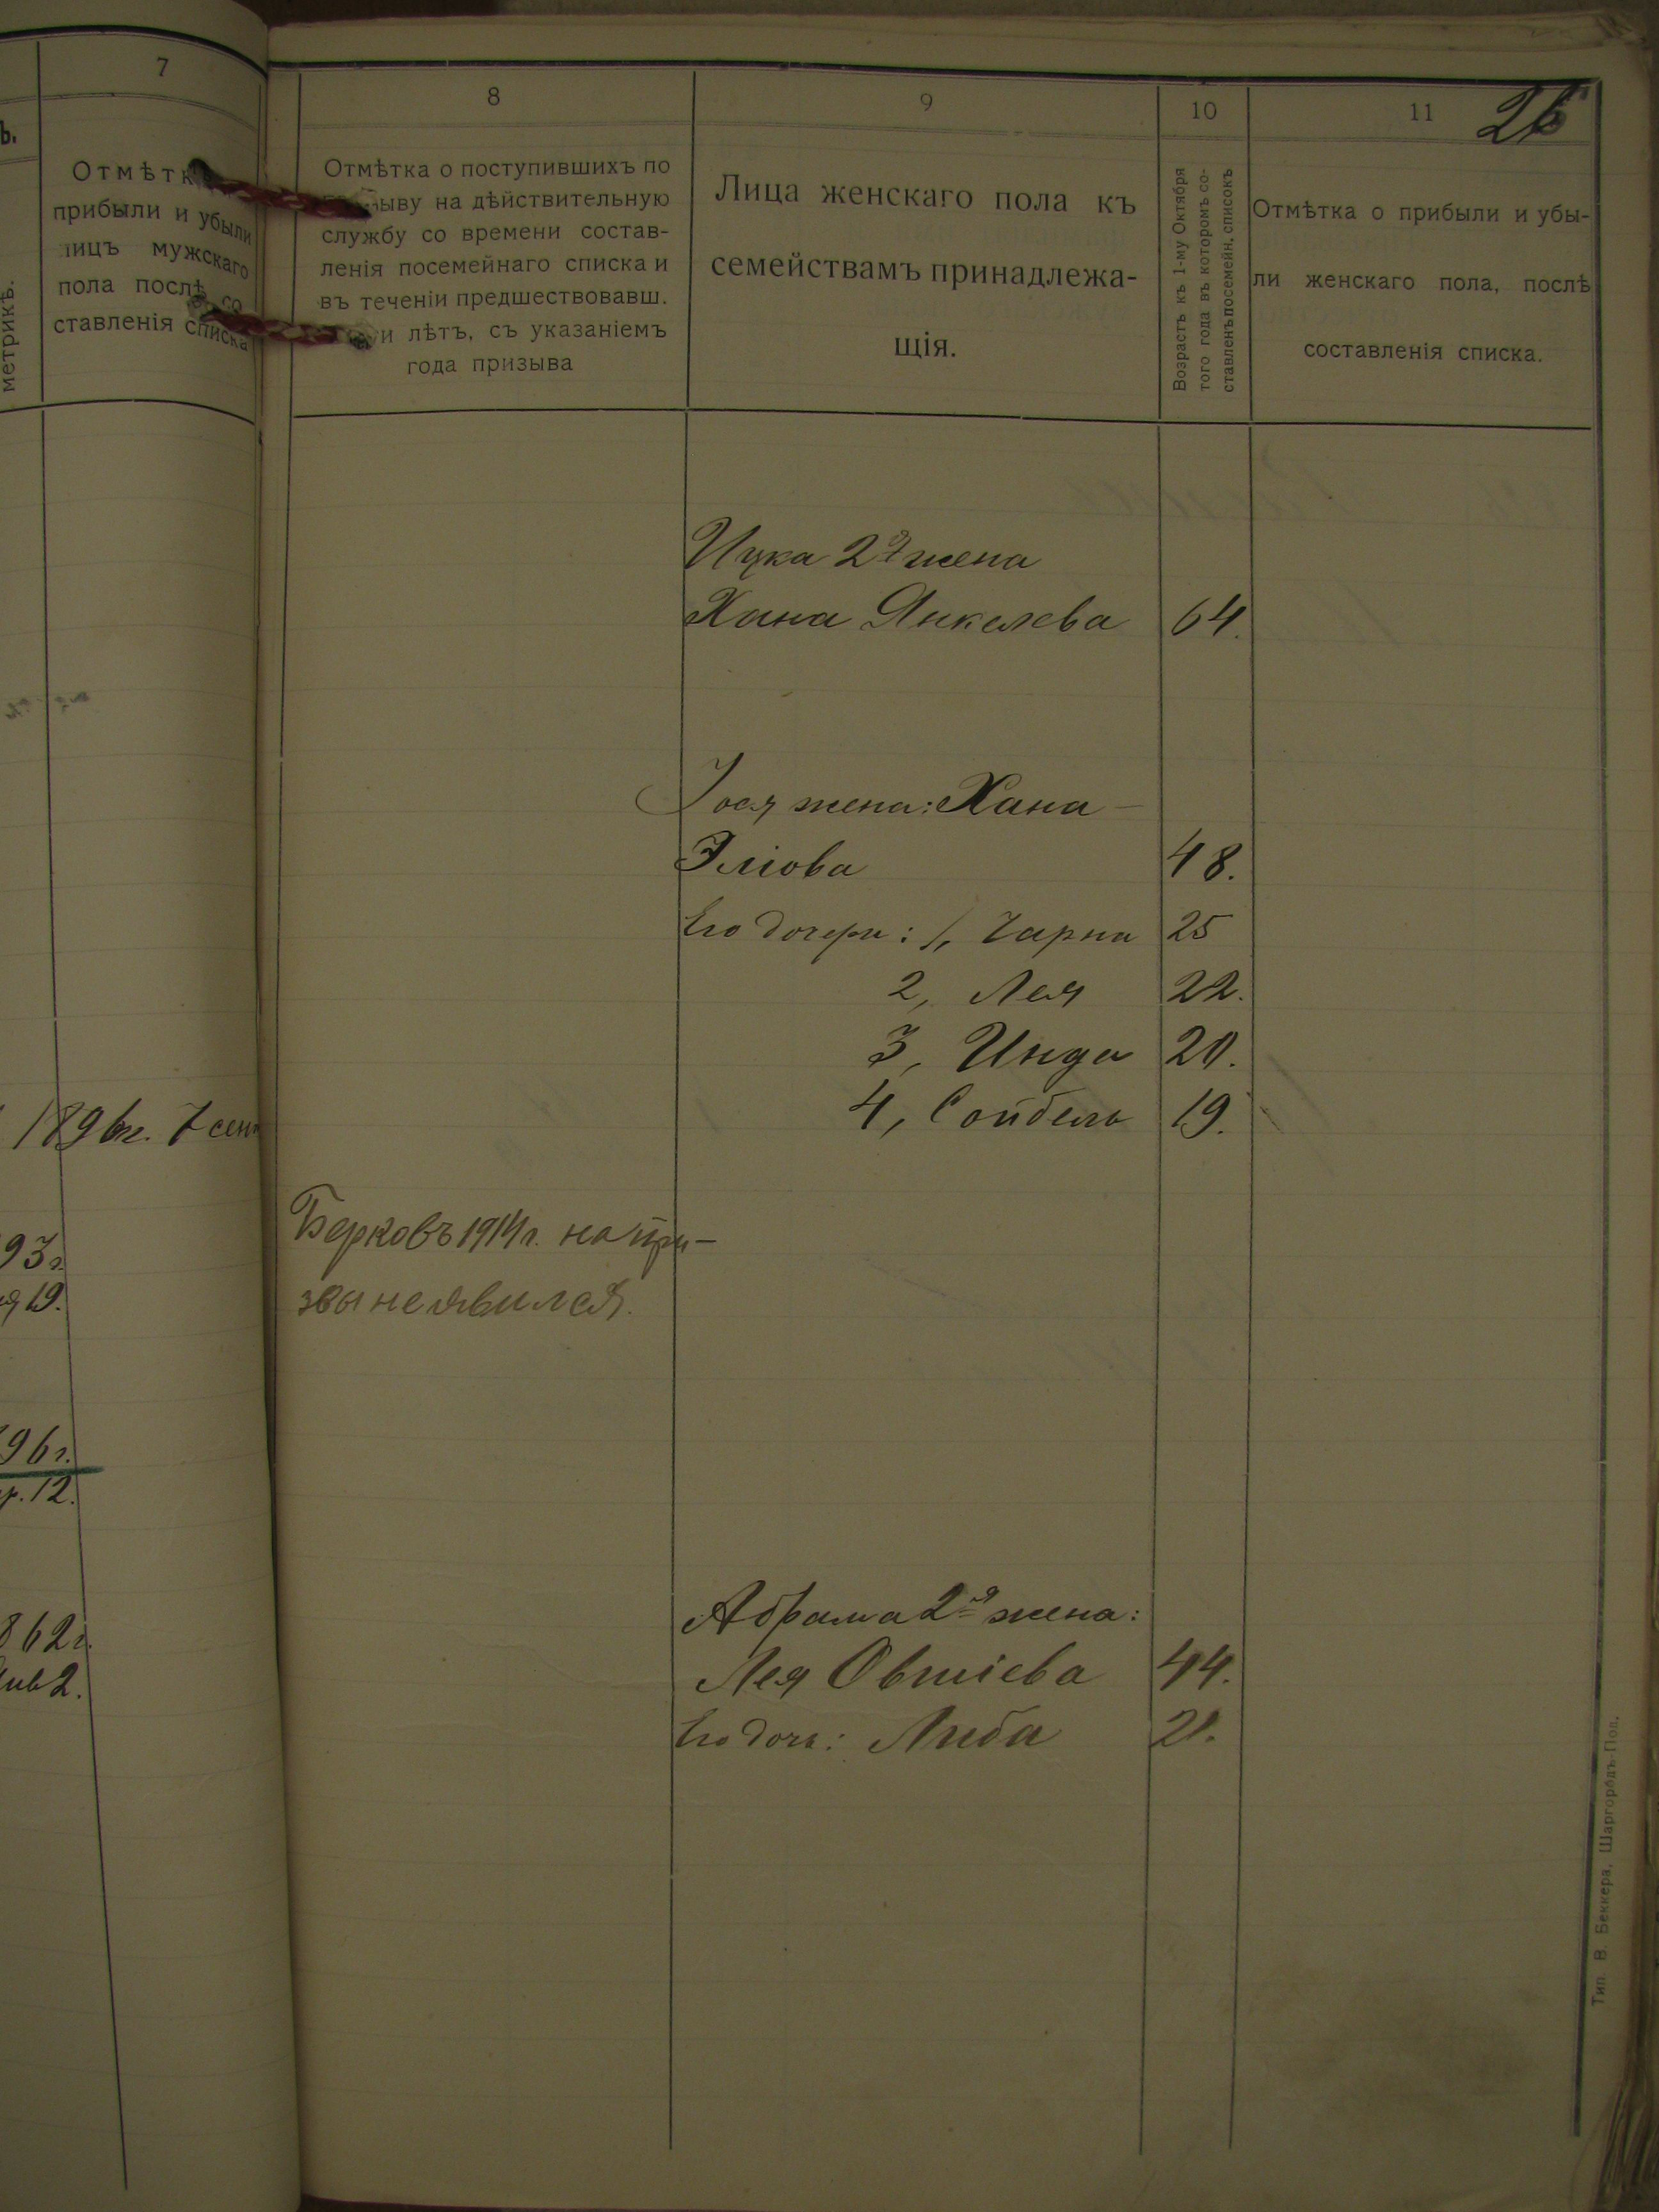 7
ъ.
Отмѣтк
прибыли и убыли
лицъ мужскаго
пола послѣ со
ставленія списка
метрикѣ.
1896г. 7 сен
93г.
19.
96г.
р. 12.
862г.
2.
8
9
10
11
26
Отмѣтка о поступившихъ по
ыву на дѣйствительную
службу со времени состав-
ленія посемейнаго списка и
въ теченіи предшествовавш.
и лѣтъ, съ указаніемъ
года призыва
Лица женскаго пола къ
семействамъ принадлежа-
щія.
Возрастъ къ 1-му Октября
того года въ которомъ со-
ставленъ посемейн. списокъ
Отмѣтка о прибыли и убы-
ли женскаго пола, послѣ
составленія списка.
Ицка 2я жена
Хана Янкелева 64.
Іося жена: Хана
Эліова 48.
Его дочери: 1, Чарна 25
2, Лея 22.
3, Инда 20.
4, Сойбель 19.
Берковъ 1914г. на при-
звы не явился.
Абрама 2я жена:
Лея Овшіева 44.
Его дочь: Люба 21.
Тип. В. Беккера, Шаргородъ-Под.